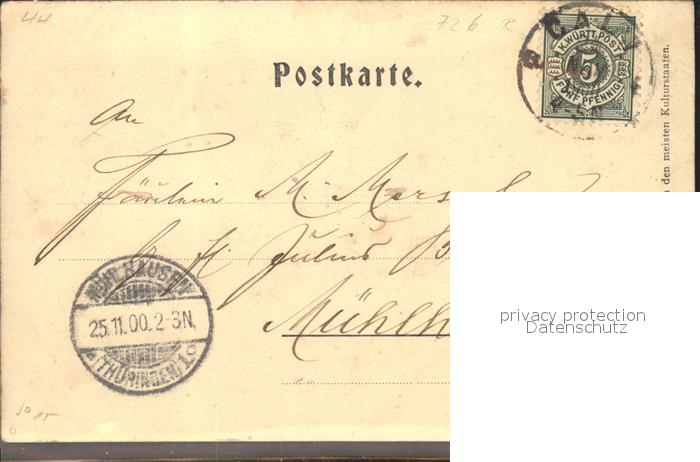 44
726 R
CALW
K. WÜRTT. POST
5
FÜNF PFENNIG
Postkarte.
den meisten Kulturstaaten.
An
Fräulein M.
Julius
Mühlh
MÜHLHAUSEN
25.11.00. 2-3N.
(THÜRINGEN) 1
privacy protection
Datenschutz